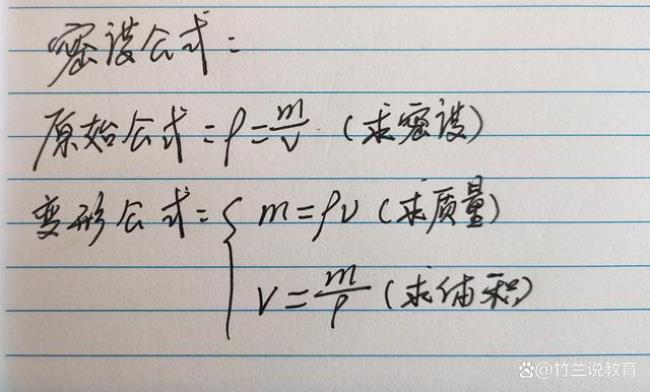 密度公式:
原始公式:ρ=m/v (求密度)
变形公式:{ m=ρv (求质量)
v=m/ρ (求体积)
竹兰说教育